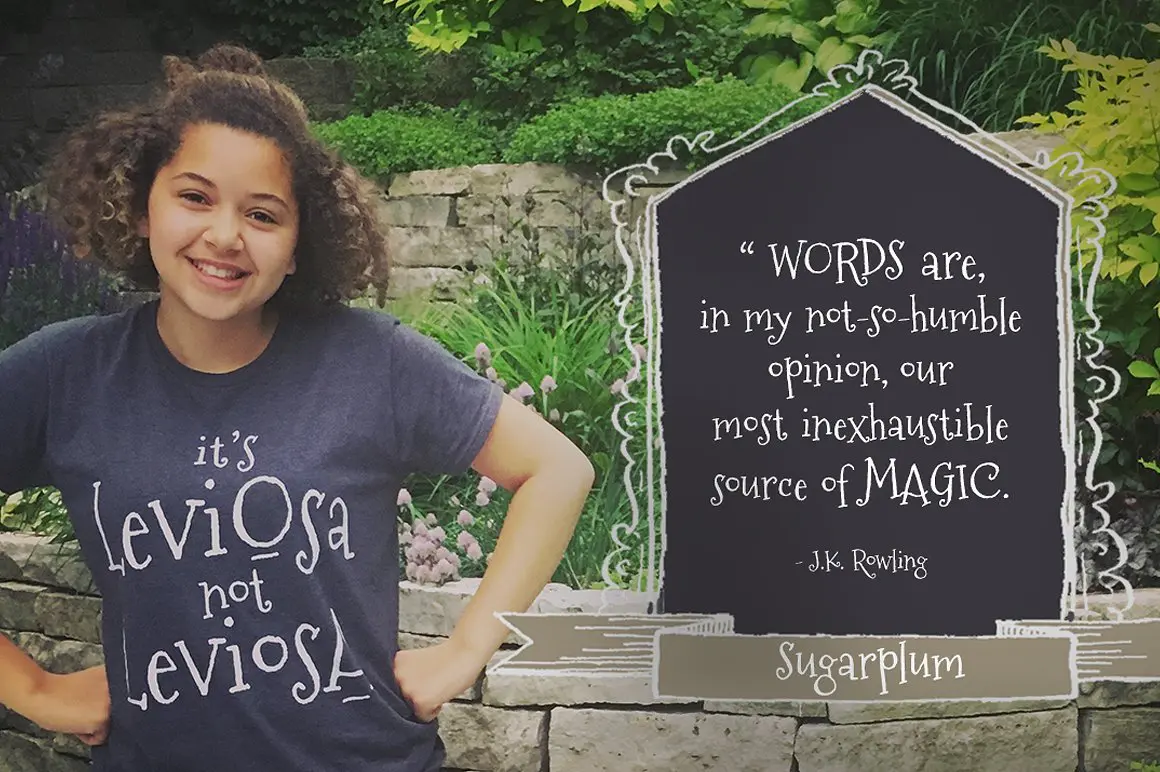 it's
LeviOsa
not
LeviosA
“ WORDS are,
in my not-so-humble
opinion, our
most inexhaustible
source of MAGIC.
- J.K. Rowling
Sugarplum